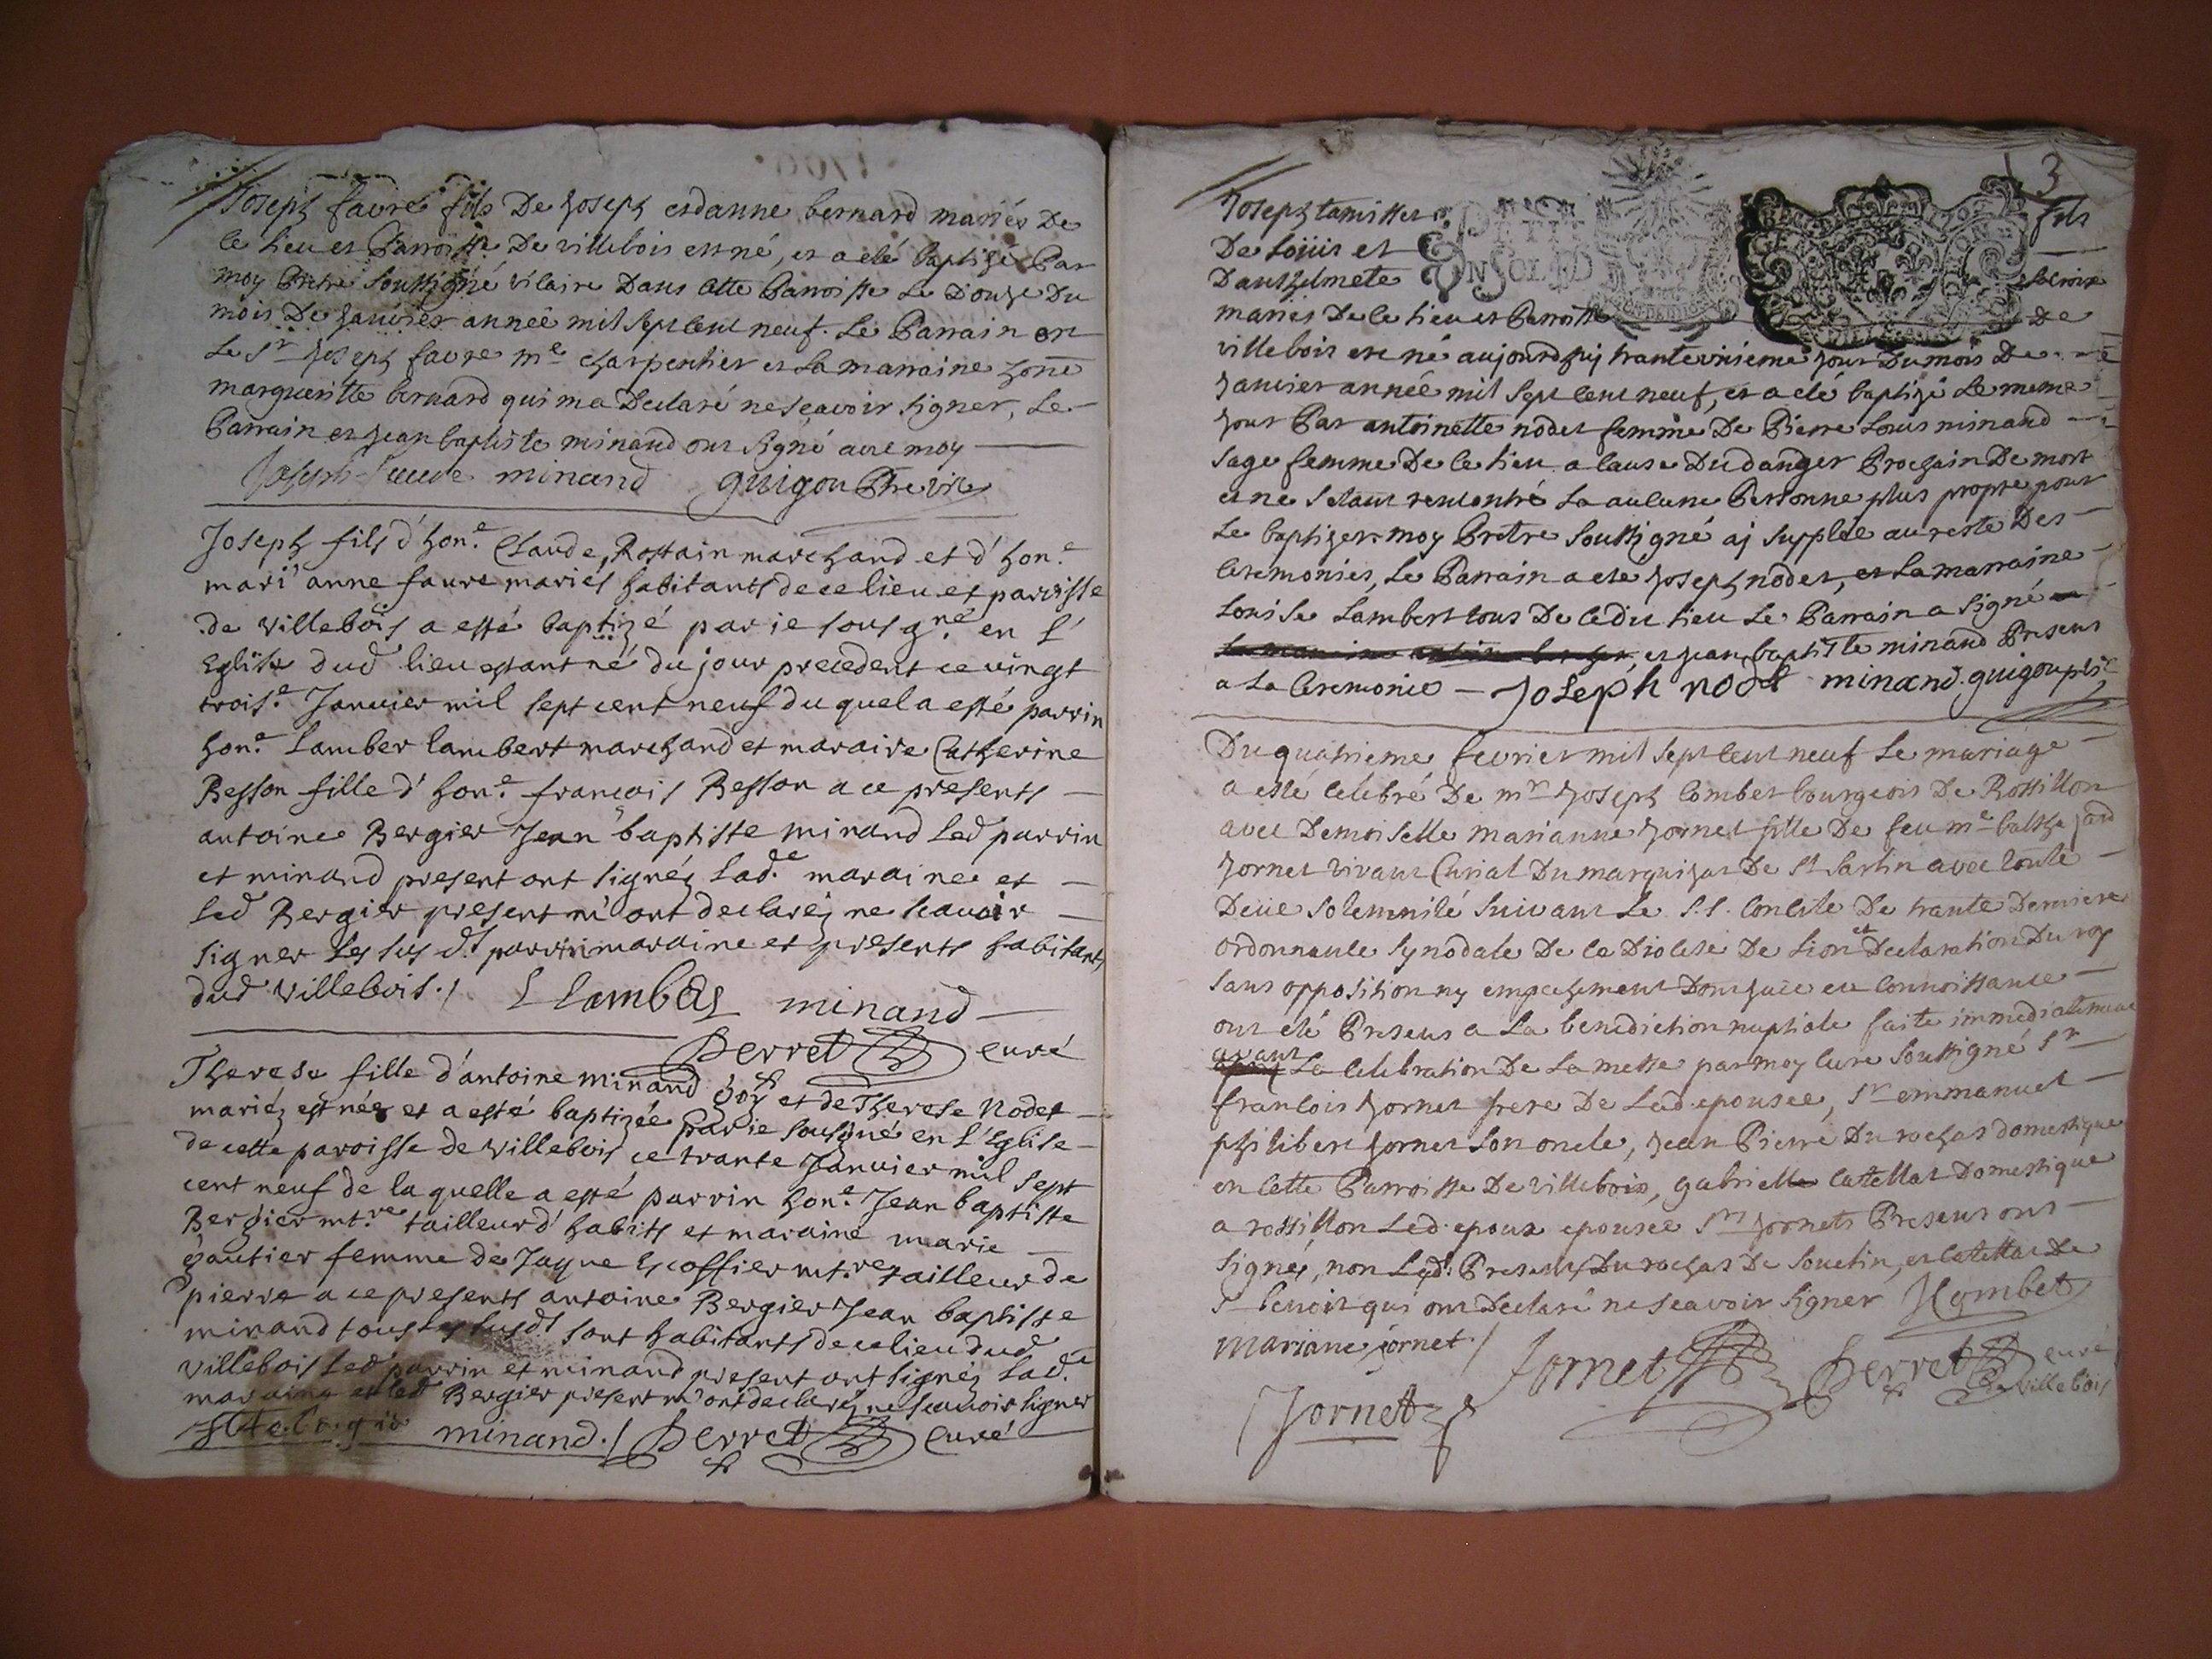 Joseph favre fils De Joseph et danne bernard mariés De
ce lieu et Parroisse De villebois est né, et a eté baptizé Par
moy Pretre soussigné vicaire Dans cette Parroisse Le Douze Du
mois De Janvier année mil sept cent neuf. Le Parrain est
Le Sr Joseph favre me charpentier et La marraine hone
margueritte bernard qui m a Declaré ne sçavoir signer, Le
Parrain et Jean baptiste minand ont signé avec moy
Joseph favre minand guigou Ptre vic
Joseph fils d'hon.e Claude, Rostain marchand et d'hon.e
mari'anne faure mariés habitants de ce lieu et parroisse
de villebois a esté baptizé par je sousgné en L'
Eglise dud lieu estant né du jour precedent ce vingt
trois.e Janvier mil sept cent neuf du quel a esté parrin
hon.e Lamber lambert marchand et maraine Catherine
Besson fille d'hon.e francois Besson a ce presents
antoine Bergier Jean baptiste minand Led parrin
et minand present ont signéz Lad.e maraine et
Led Bergier present m'ont declaréz ne scavoir
signer Les susdt parrin maraine et presents habitants
dud villebois./ L Lambert minand
Perret curé
Therese fille d'antoine minand et de Therese Nodet
mariéz est née et a esté baptizée par je sousgné en L'Eglise
de cette paroisse de villebois ce trante Janvier mil sept
cent neuf de la quelle a esté parrin hon.e Jean baptiste
Bergier mt.re tailleur d'habits et maraine marie
gautier femme de Jaque Escoffier mt.re tailleur de
pierre a ce presents antoine Bergier Jean baptiste
minand tous Les susdt sont habitants de ce lieu dud
villebois Led parrin et minand present ont signéz Lad.e
maraine et led Bergier present m'ont declaréz ne scavoir signer
minand./ Perret Curé
3
Joseph tamisier fils
De Loüis et
Danthelmete
mariés De ce lieu et Parroisse De
villebois est né aujourdhuy trante unieme jour Du mois De
Janvier année mil sept cent neuf, et a eté baptizé Le meme
jour Par antoinette nodet femme De Pierre Louis minand
sage femme De ce lieu a cause Du danger Prochain De mort
et ne s etant rencontré La aucune Personne plus propre pour
Le baptizer. moy Pretre soussigné aj supplée au reste Des
Ceremonies, Le Parrain a eté Joseph nodet, et La marraine
Louise Lambert tous De cedit lieu Le Parrain a signé
et jean baptiste minand Present
a La Ceremonie Joseph nodet minand. guigou ptre
Du quatrieme fevrier mil sept cent neuf Le mariage
a esté célébré De mr Joseph Combet bourgeois De Rossillon
avec Demoiselle marianne Jornet fille De feu me balthezard
Jornet vivant Curial Du marquisat De St Sorlin avec toute
Deüe solemnité suivant Le S.S. Concile De trante Derniere
ordonnance synodale De ce Diocese De Lion et Declaration Du roy
sans opposition ny empechement Dont j'aie eu connoissance
ont eté Presens a La benediction nuptiale faite immediatement
avant La celebration De La messe par moy cure soussigné Sr
francois Jornet frere De Lad. epousee, Sr emmanuel
philibert Jornet son oncle, Jean Pierre Durochas domestique
en cette Parroisse De villebois, gabriel catellat Domestique
a rossillon Led. epoux epousee Srs Jornets Presens ont
signéz, non Lesd. Presens Durochas De souclin, et catellat De
St benoit qui ont Declaré ne sçavoir signer J Combet
mariane jornet./ Jornet Perret curé
de villebois
Jornet